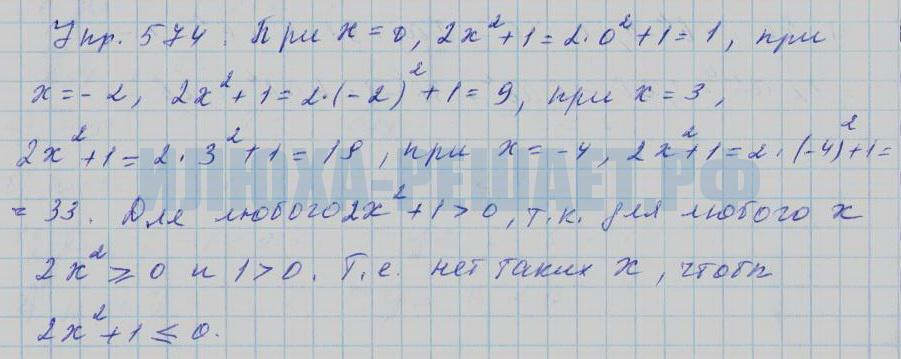 Упр. 574. При x = 0, 2x² + 1 = 2 · 0² + 1 = 1, при
x = - 2, 2x² + 1 = 2 · (-2)² + 1 = 9, при x = 3,
2x² + 1 = 2 · 3² + 1 = 19, при x = -4, 2x² + 1 = 2 · (-4)² + 1 =
= 33. Для любого 2x² + 1 > 0, т.к. для любого x
2x² ⩾ 0 и 1 > 0. Т.е. нет таких x, чтобы
2x² + 1 ≤ 0.
ИЛЮХА-РЕШАЕТ.РФ